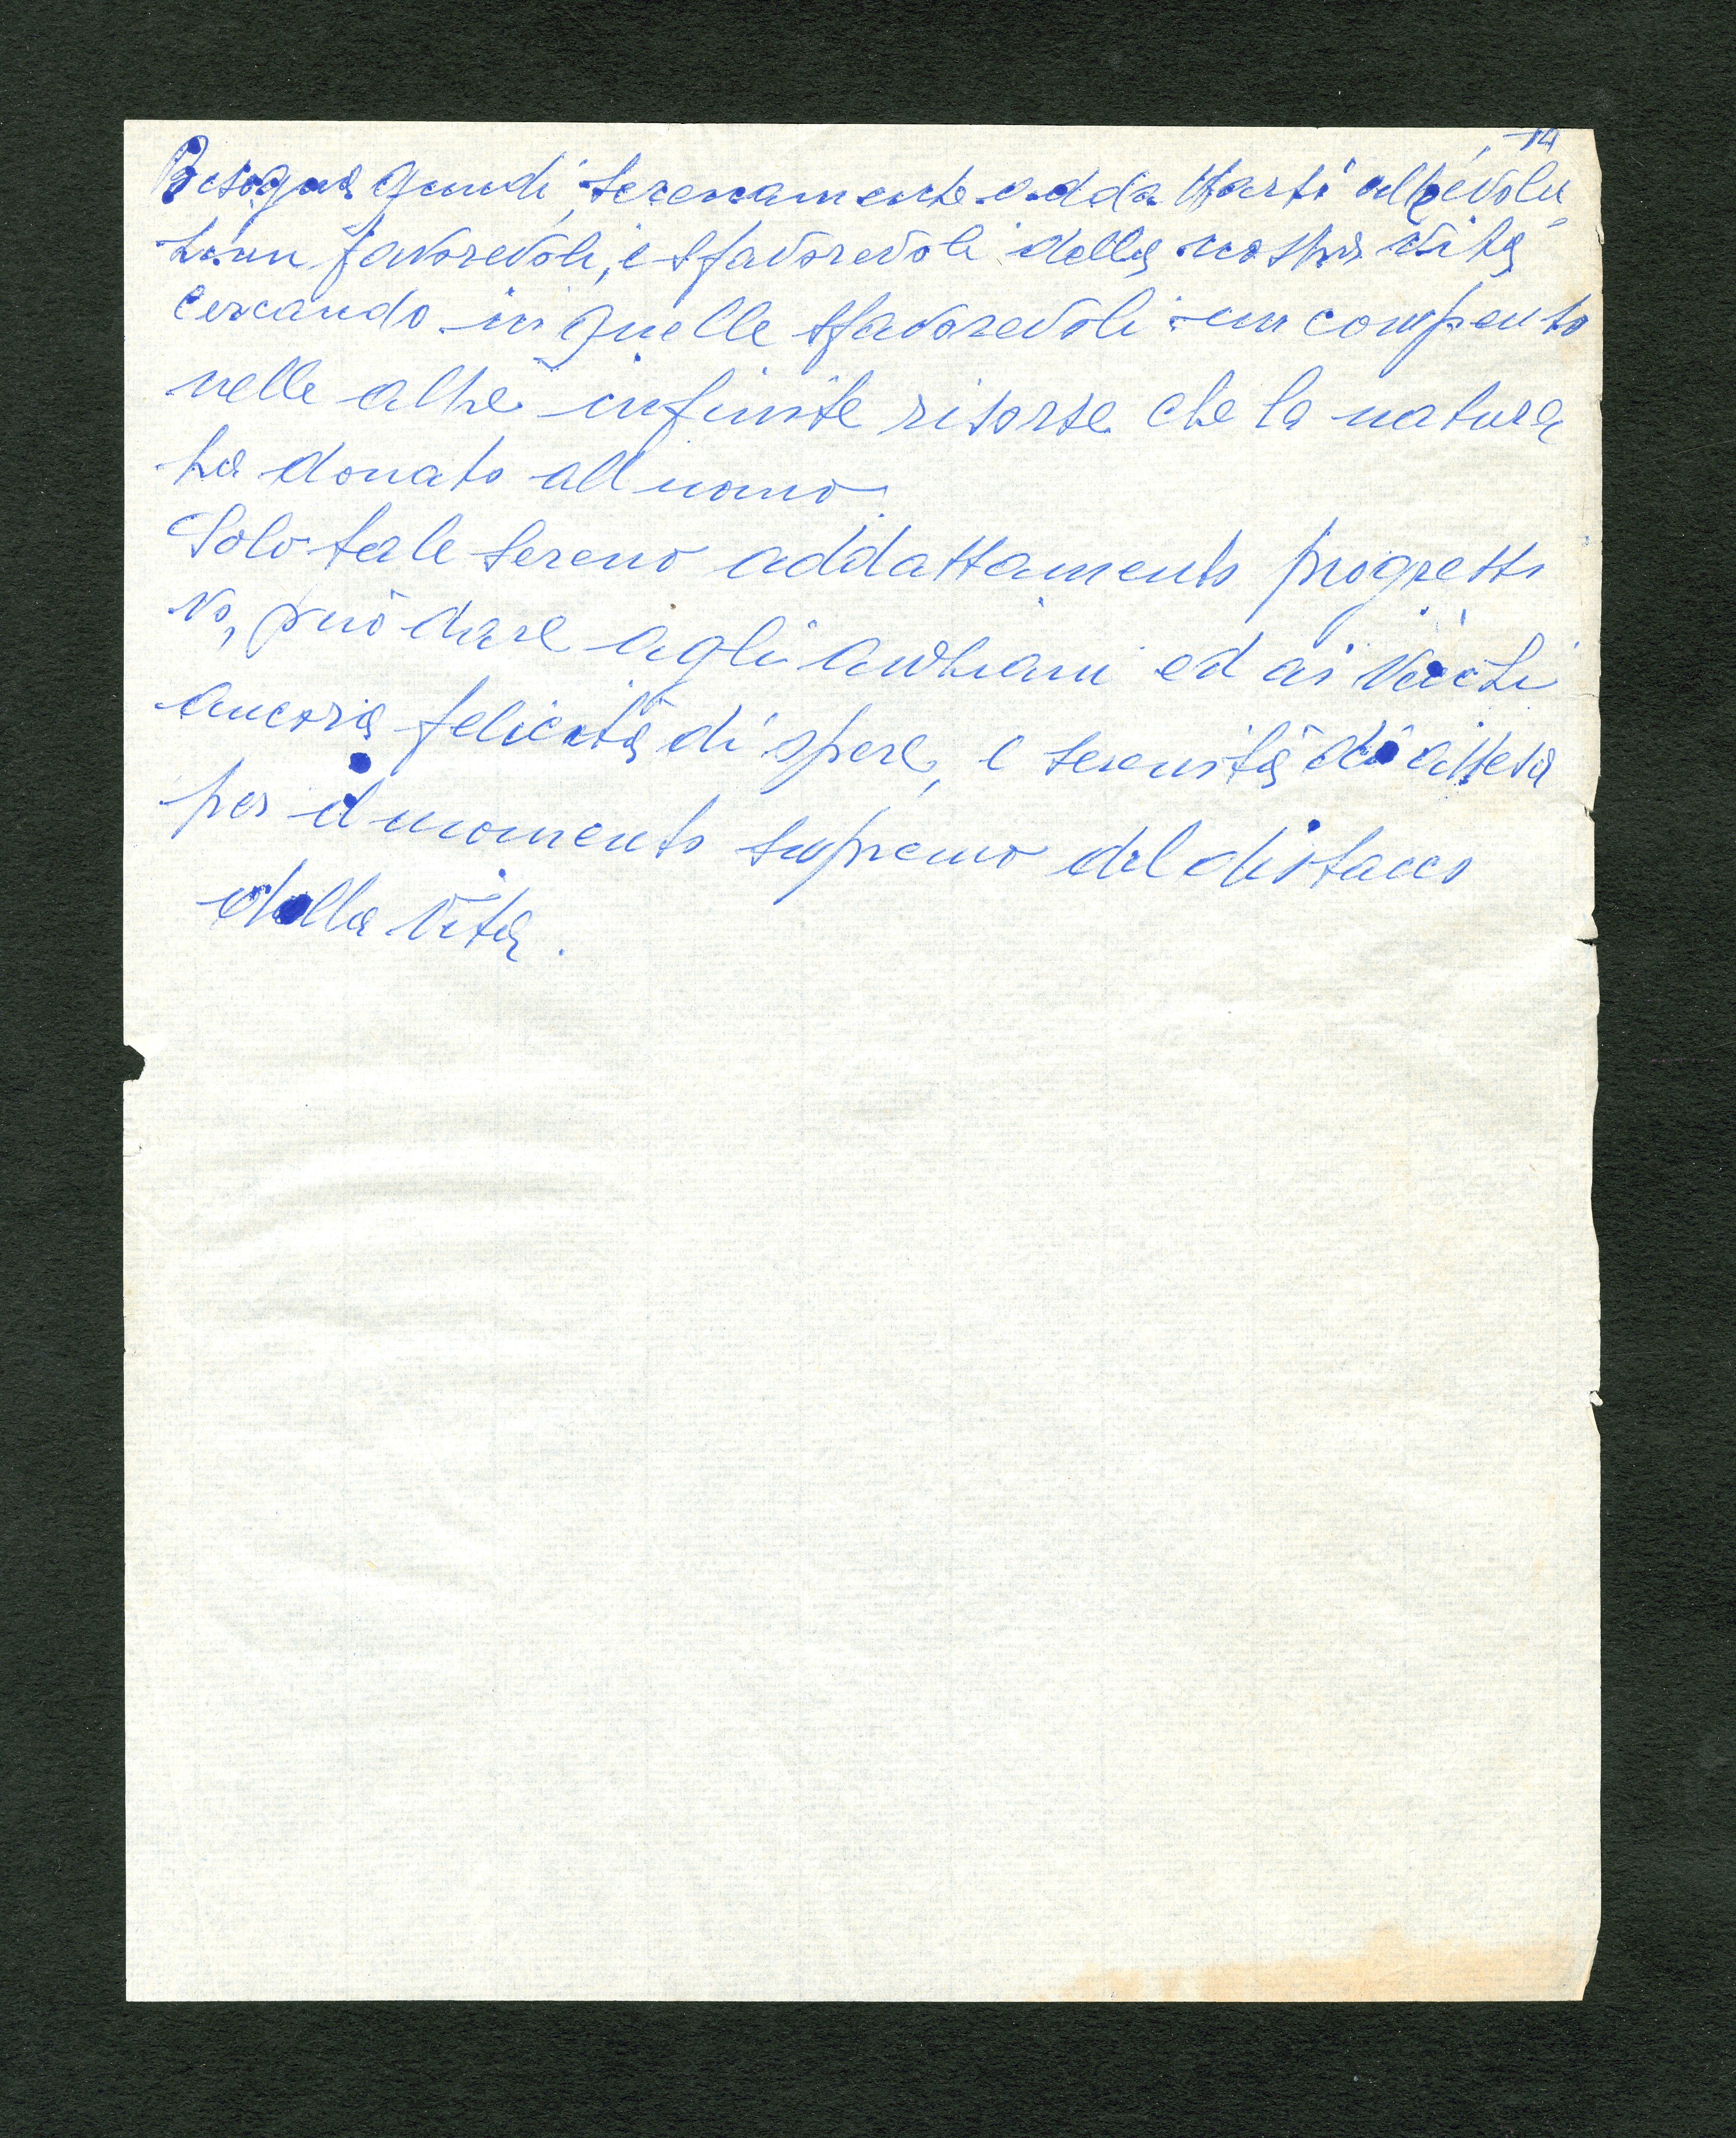 14
Bisogna quindi, serenamente addattarsi all'evolu
zioni favorevoli, e sfavorevoli della nostra vita
cercando in quelle sfavorevoli un compenso
nelle altre infinite risorse che la natura
ha donato all uomo.
Solo tale sereno addattamento progressi
vo, può dare agli anziani ed ai vecchi
ancora felicità di opere, e serenità di attesa
per il momento supremo del distacco
dalla vita.